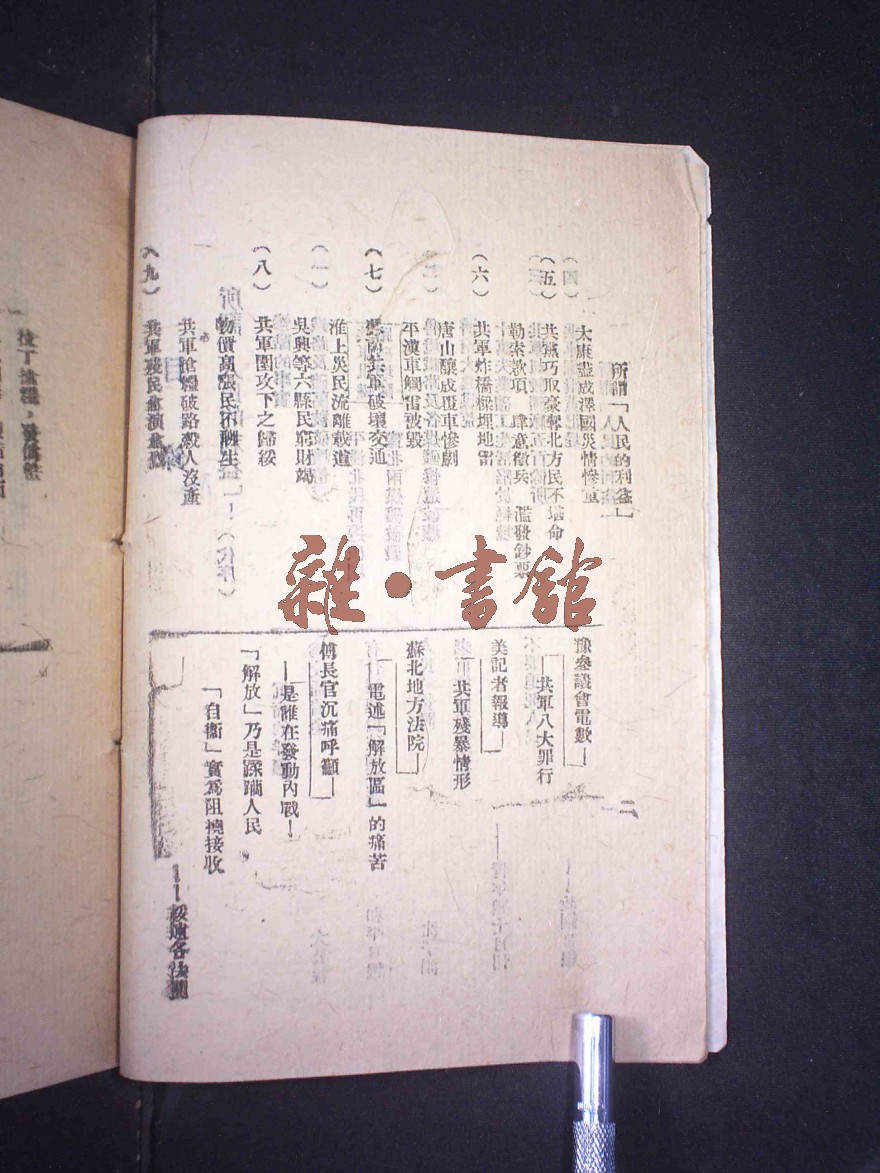 所謂「人民的利益」
太康盡成澤國災情慘重
(五) 共黨巧取豪奪北方民不堪命
勒索款項 肆意徵兵 濫發鈔票
(六) 共軍炸橋樑埋地雷
唐山釀成覆車慘劇
平漢車觸雷被毀
(七) 共軍破壞交通
淮上災民流離載道
(一) 吳興等六縣民窮財竭
(八) 共軍圍攻下之歸綏
物價高漲民不聊生
共軍搶糧破路殺人沒產
(九) 共軍殘民愈演愈烈
二
豫參議會電數——
共軍八大罪行
美記者報導——
共軍殘暴情形
蘇北地方法院——
電述「解放區」的痛苦
傅長官沉痛呼籲——
——是誰在發動內戰!
「解放」乃是蹂躪人民
「自衛」實為阻撓接收
——綏遠各法團
拉丁搶糧,發偽幣
雜·書館